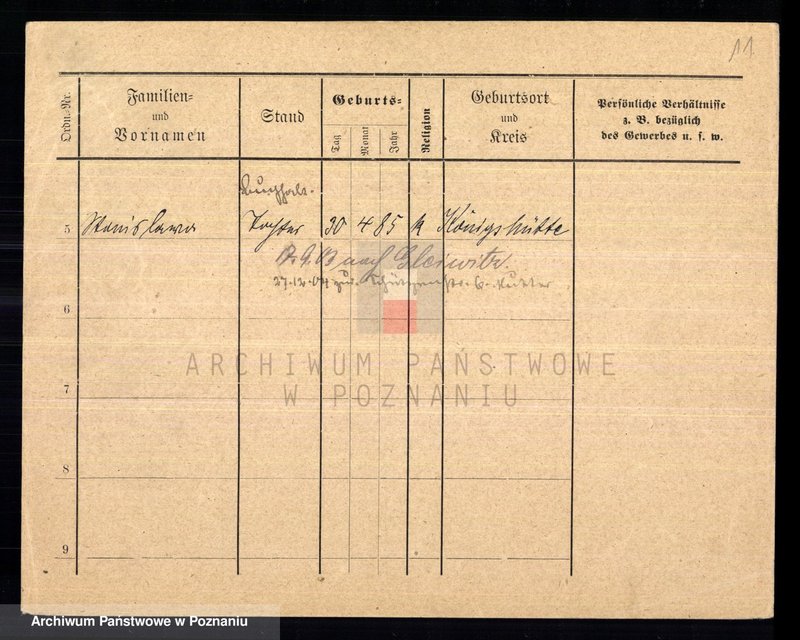 11.
Ordn.-Nr.
Familien-
und
Vornamen
Stand
Geburts-
Tag
Monat
Jahr
Religion
Geburtsort
und
Kreis
Persönliche Verhältnisse
z. B. bezüglich
des Gewerbes u. s. w.
5 Stanislawa Tochter 30 4 85 k Königshütte
nach Gleiwitz.
27.12.04 zur. Schützenstr. 6. Mutter
6
ARCHIWUM PAŃSTWOWE
W POZNANIU
7
8
9
Archiwum Państwowe w Poznaniu